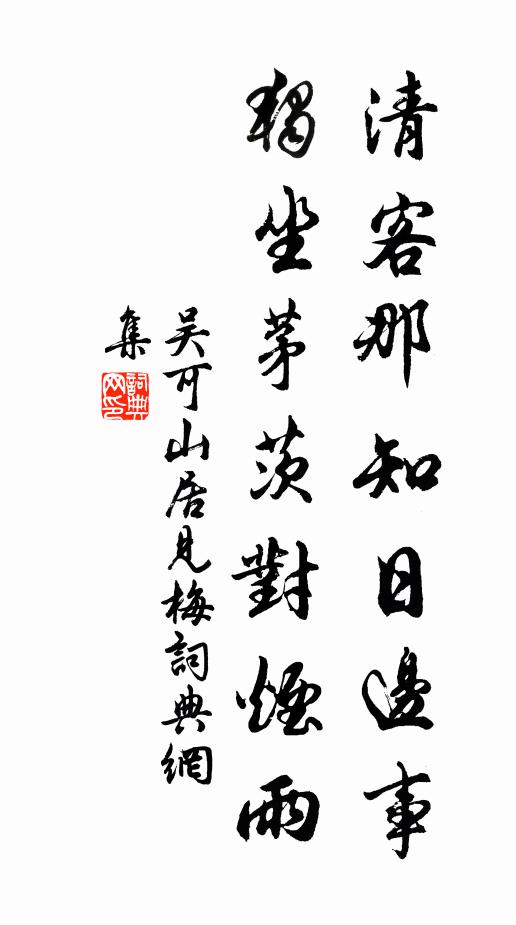 清客那知日邊事
獨坐茅茨對煙雨
吴可山居見梅詞典網
集
詞典
网印